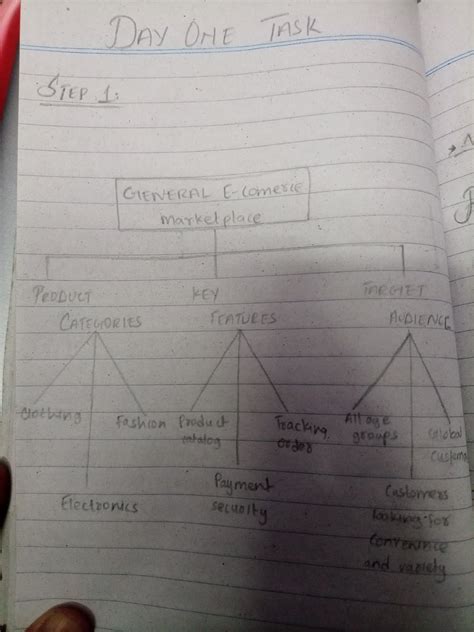 DAY ONE TASK
STEP 1:
GENERAL E-comerce
marketplace
PRODUCT
CATEGORIES
KEY
FEATURES
TARGET
AUDIENCE
Clothing
Electronics
Fashion
Product
catalog
Payment
security
Tracking
order
All age
groups
Customers
looking for
convenience
and variety
Global